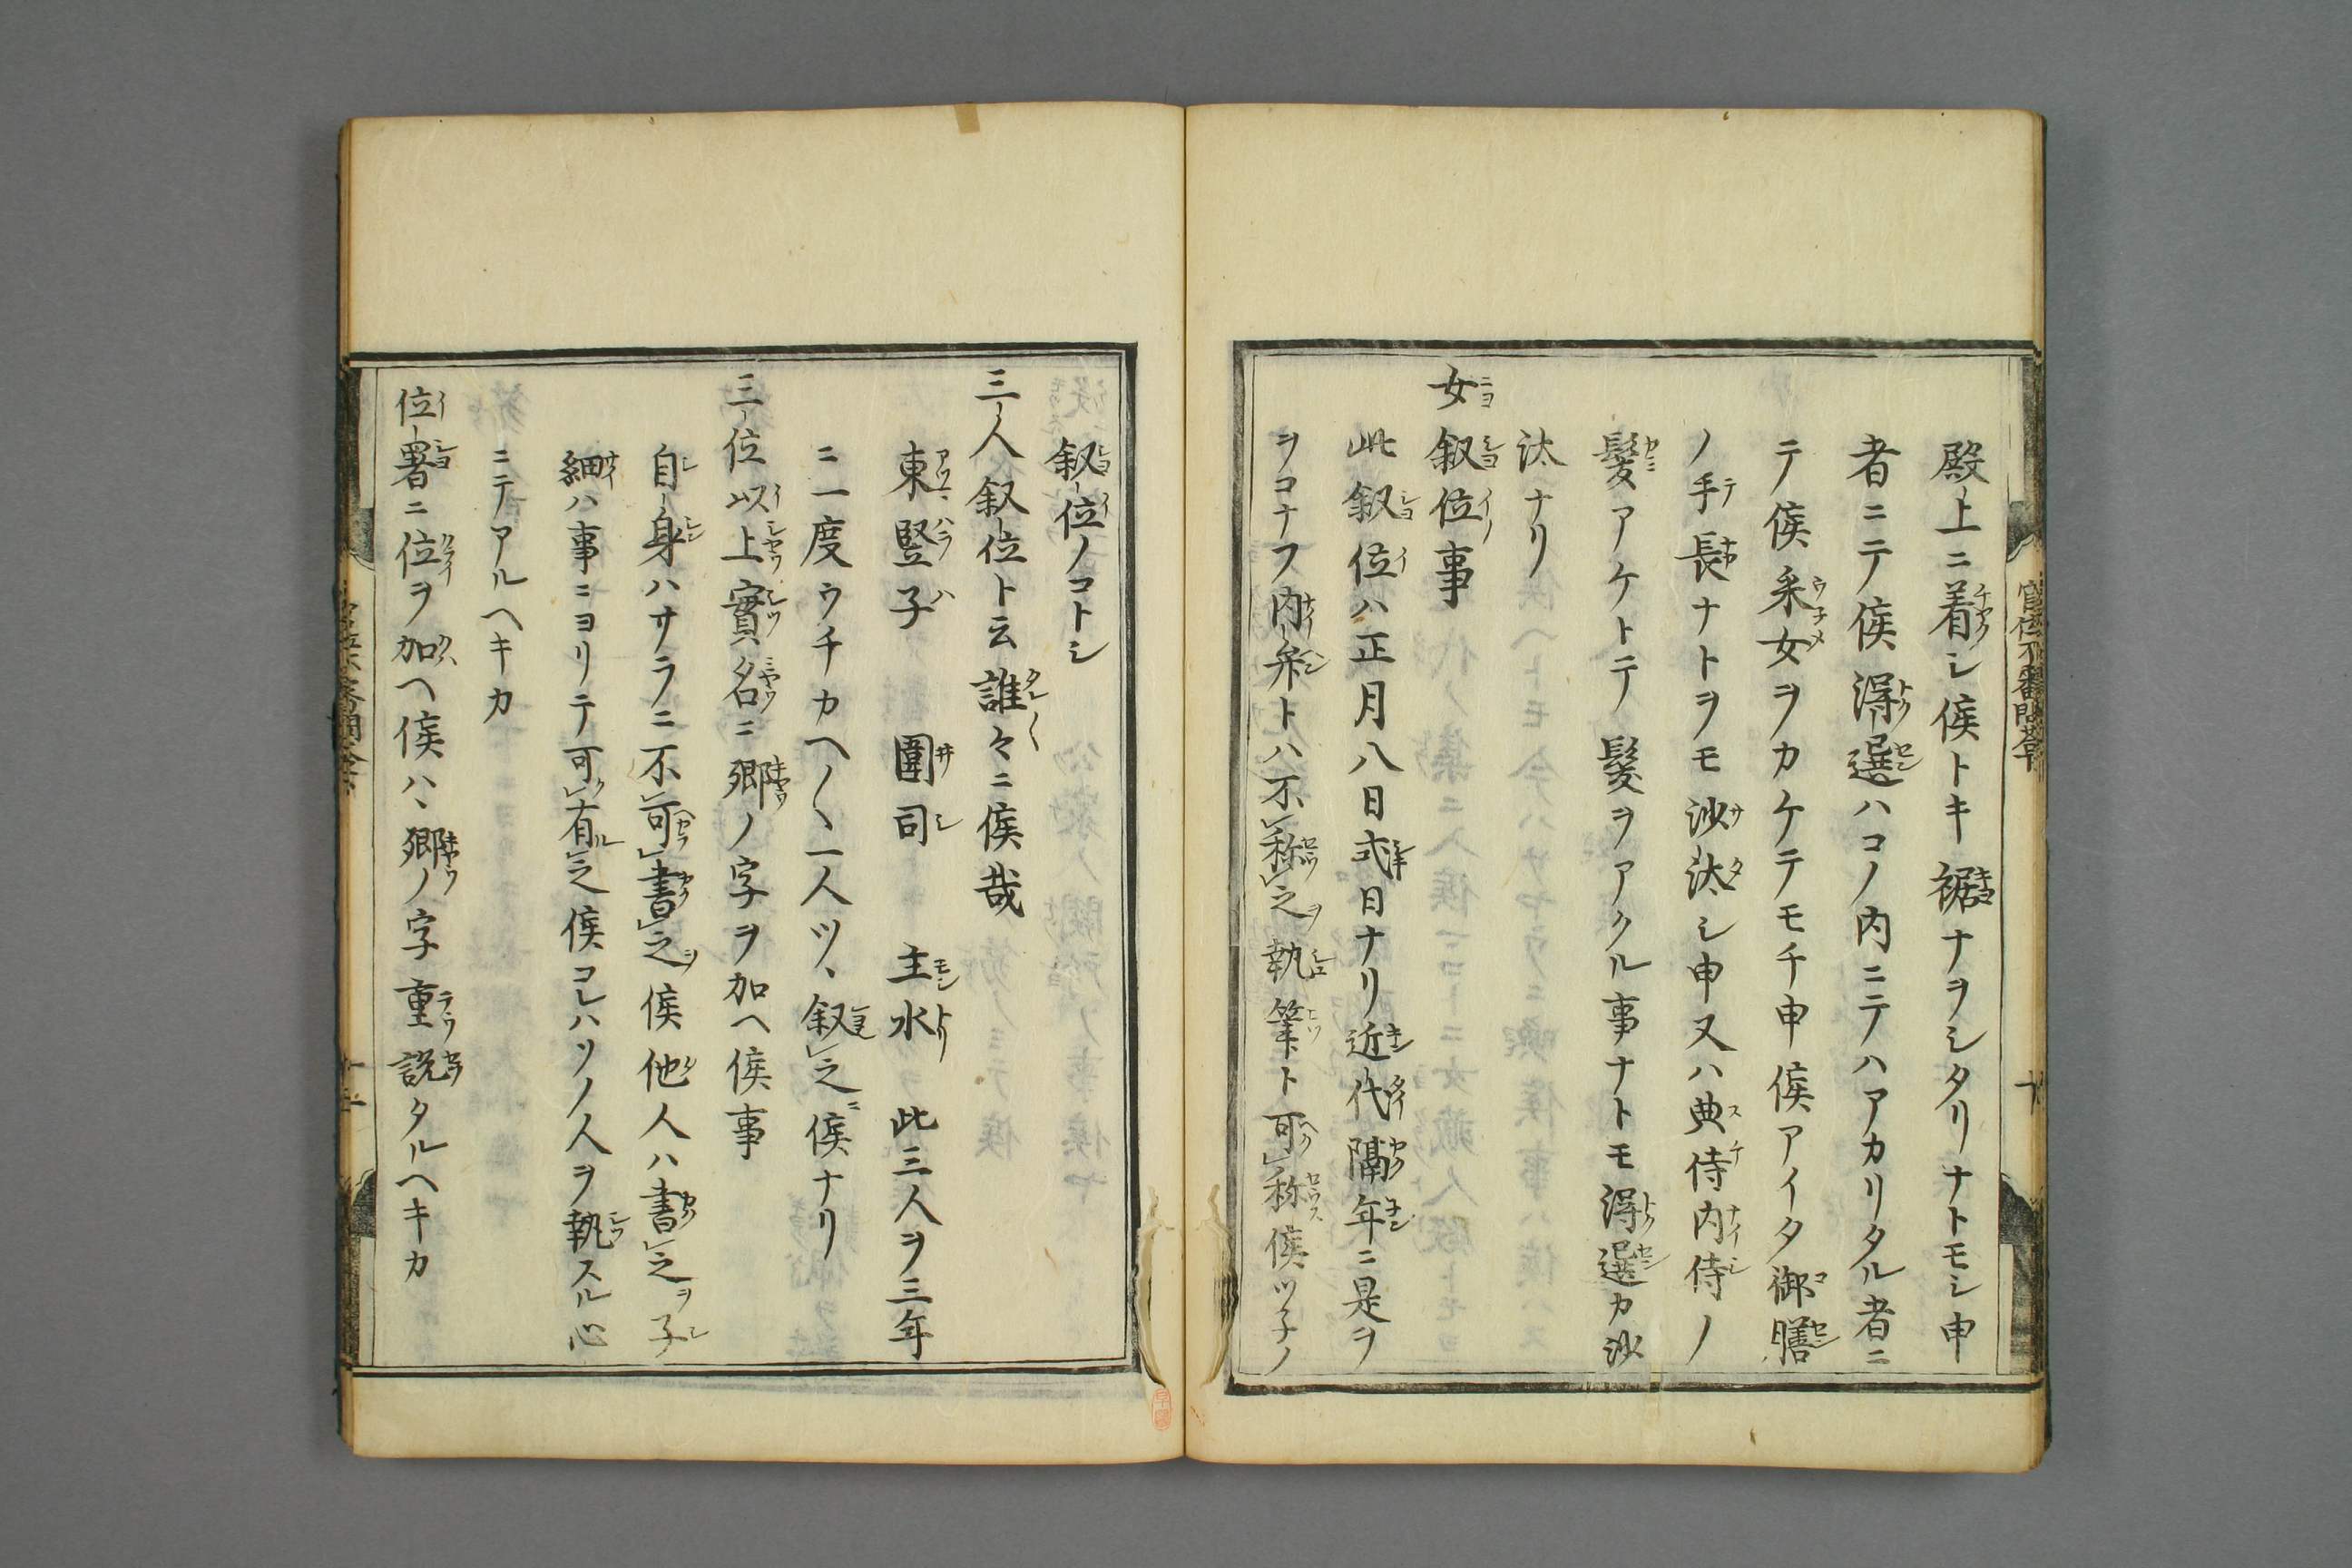 殿上ニ着シ候トキ裾ナヲシタリナトモシ申
者ニテ候得選ハコノ内ニテハアカリタル者ニ
テ候采女ヲカケテモチ申候アイタ御膳
ノ手長ナトヲモ沙汰シ申又ハ典侍内侍ノ
髪アケトテ髪ヲアクル事ナトモ得選カ沙
汰ナリ
女叙位事
此叙位ハ正月八日式日ナリ近代隔年ニ是ヲ
ヲコナフ内弁トハ不称之執筆ト可称候ツ子ノ
叙位ノコトシ
三人叙位ト云誰々ニ候哉
東竪子 圍司 主水 此三人ヲ三年
ニ一度ウチカヘ〱一人ツヽ叙之候ナリ
三位以上實名ニ卿ノ字ヲ加ヘ候事
自身ハサラニ不可書之候他人ハ書之子
細ハ事ニヨリテ可有之候コレハソノ人ヲ執スル心
ニテアルヘキカ
位署ニ位ヲ加ヘ候ハヽ卿ノ字重説タルヘキカ